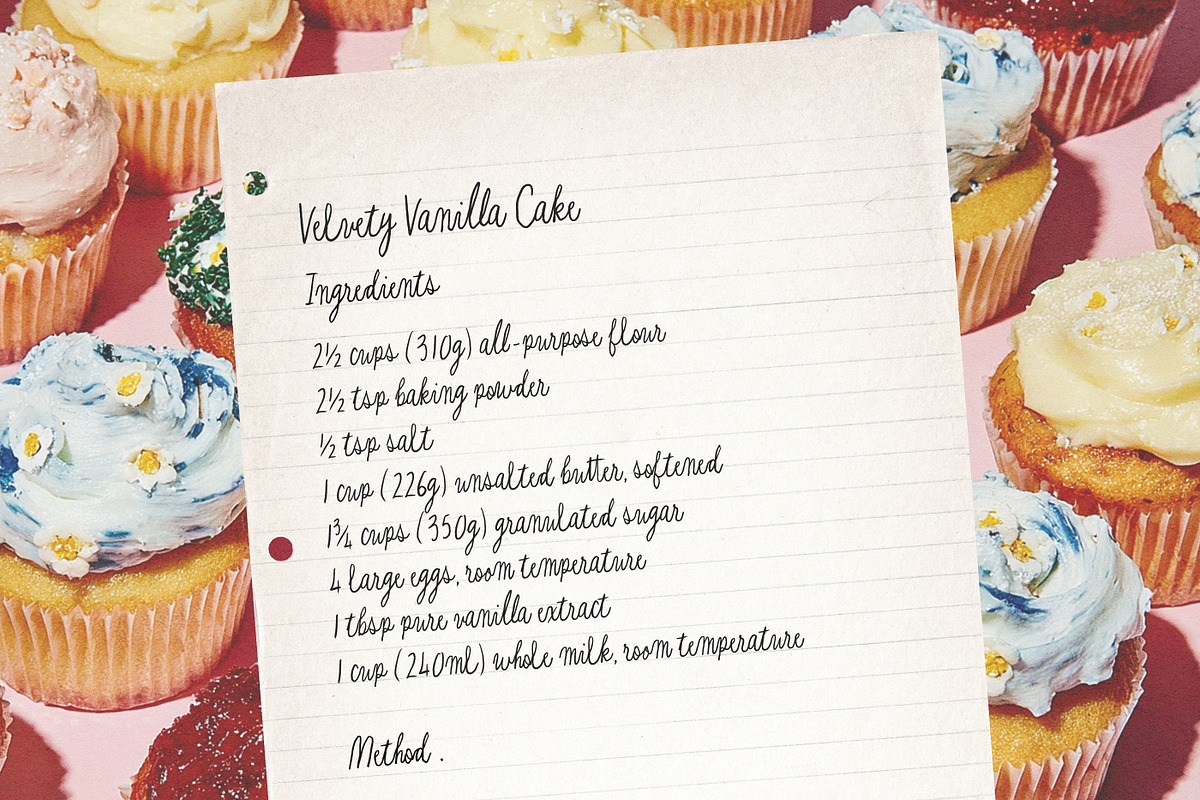 Velvety Vanilla Cake
Ingredients
2½ cups (310g) all-purpose flour
2½ tsp baking powder
½ tsp salt
1 cup (226g) unsalted butter, softened
1¾ cups (350g) granulated sugar
4 large eggs, room temperature
1 tbsp pure vanilla extract
1 cup (240ml) whole milk, room temperature
Method.